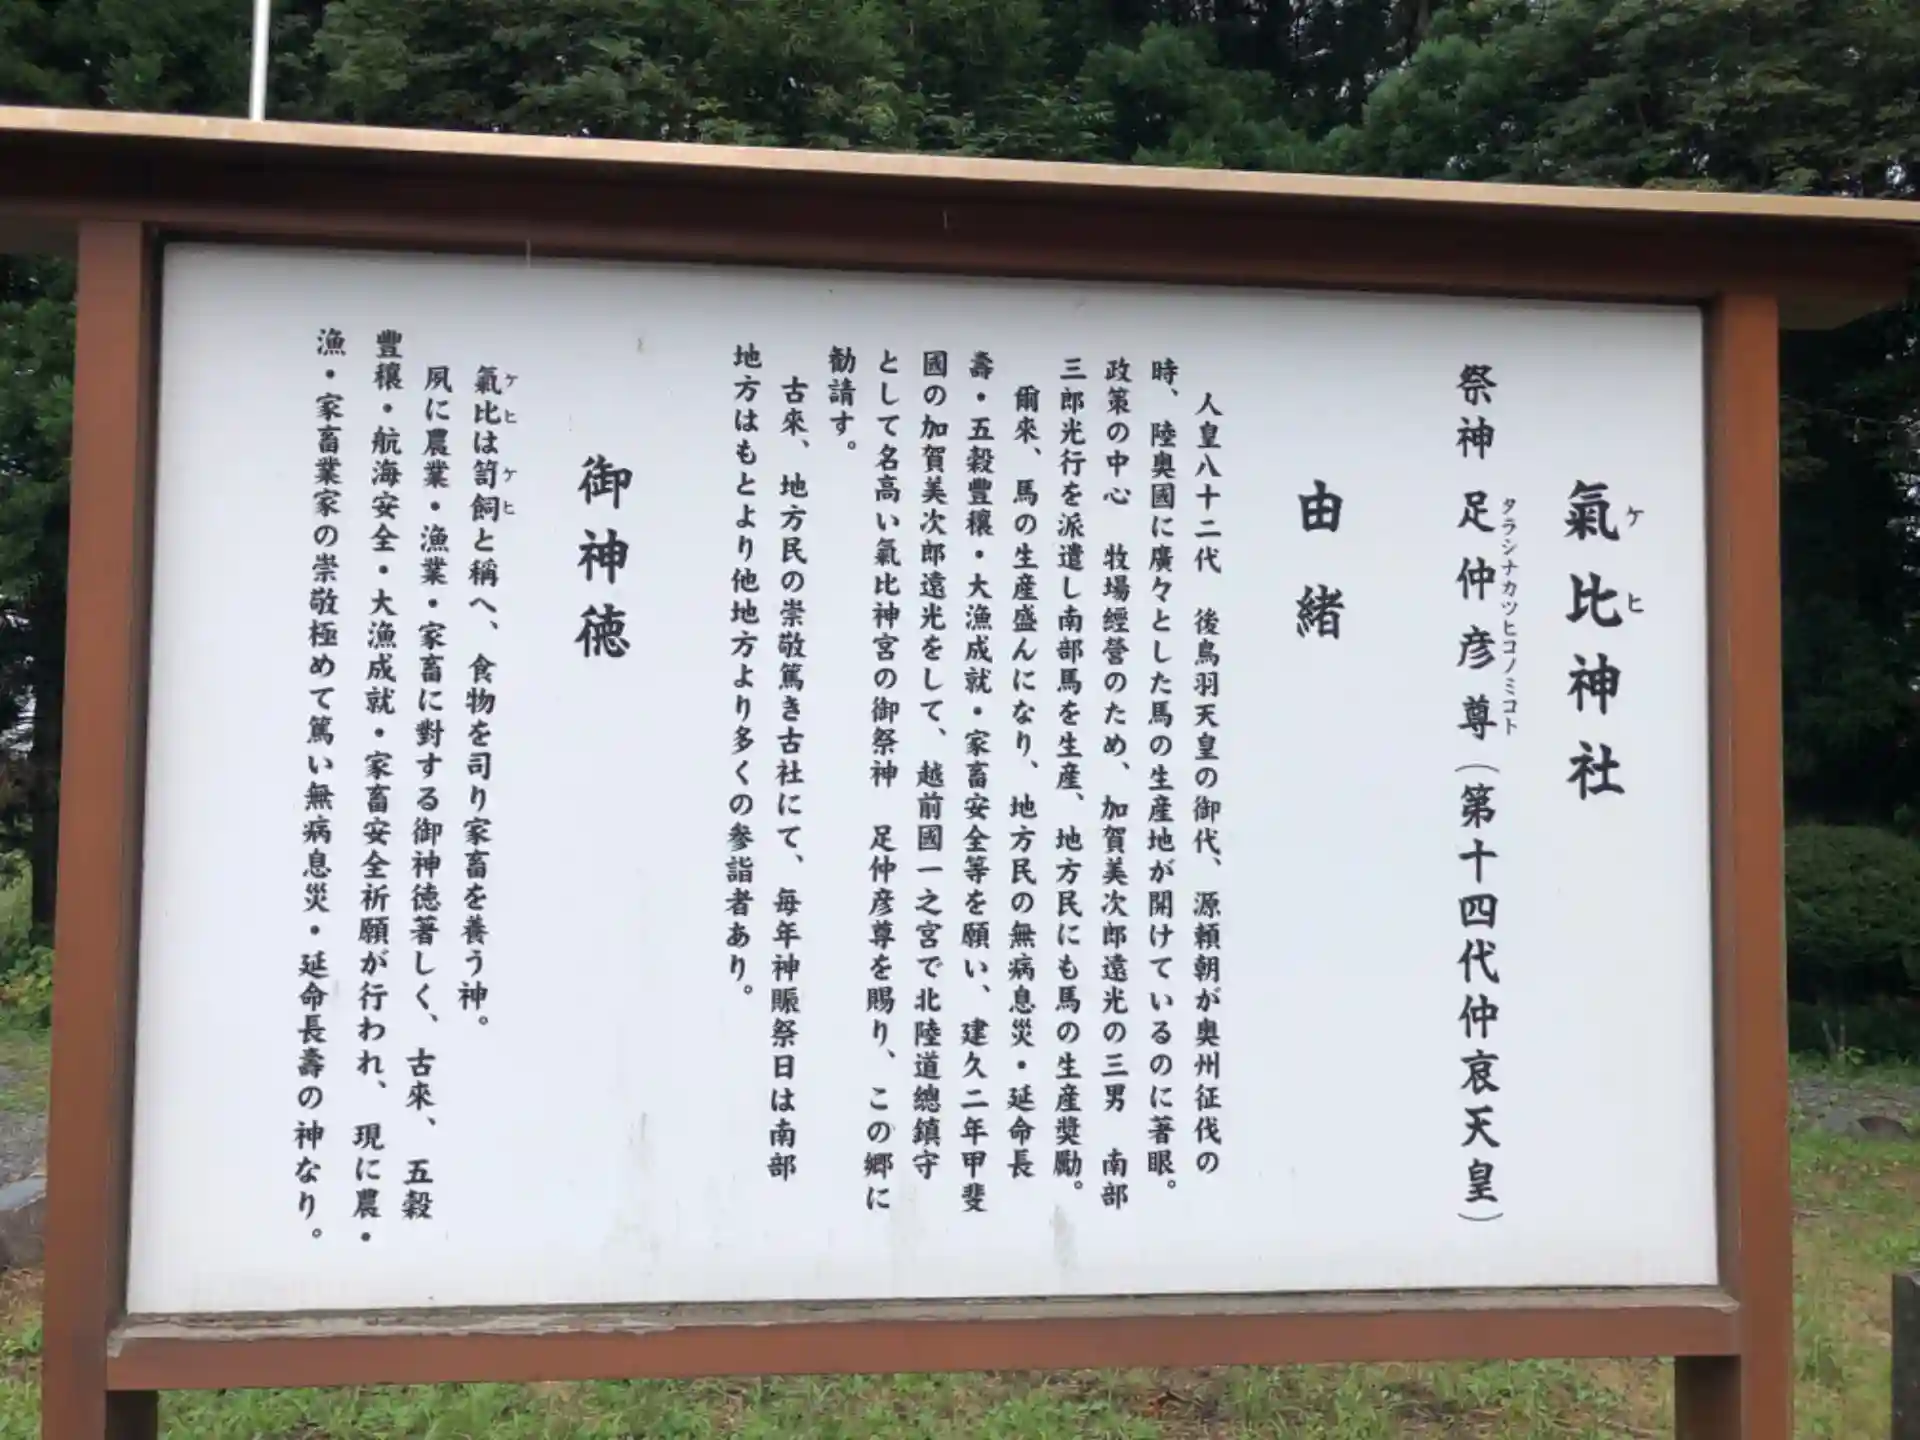 氣比神社
ケヒ
祭神 足仲彦尊(第十四代仲哀天皇)
タラシナカツヒコノミコト
由緒
人皇八十二代 後鳥羽天皇の御代、源頼朝が奥州征伐の
時、陸奥國に廣々とした馬の生産地が開けているのに著眼。
政策の中心 牧場經営のため、加賀美次郎遠光の三男 南部
三郎光行を派遣し南部馬を生産、地方民にも馬の生産奬勵。
爾來、馬の生産盛んになり、地方民の無病息災・延命長
壽・五穀豊穰・大漁成就・家畜安全等を願い、建久二年甲斐
國の加賀美次郎遠光をして、越前國一之宮で北陸道總鎮守
として名高い氣比神宮の御祭神 足仲彦尊を賜り、この郷に
勧請す。
古來、地方民の崇敬篤き古社にて、毎年神賑祭日は南部
地方はもとより他地方より多くの参詣者あり。
御神徳
氣比は笥飼と稱へ、食物を司り家畜を養う神。
ケヒ ケヒ
夙に農業・漁業・家畜に對する御神徳著しく、古來、五穀
豊穰・航海安全・大漁成就・家畜安全祈願が行われ、現に農・
漁・家畜業家の崇敬極めて篤い無病息災・延命長壽の神なり。